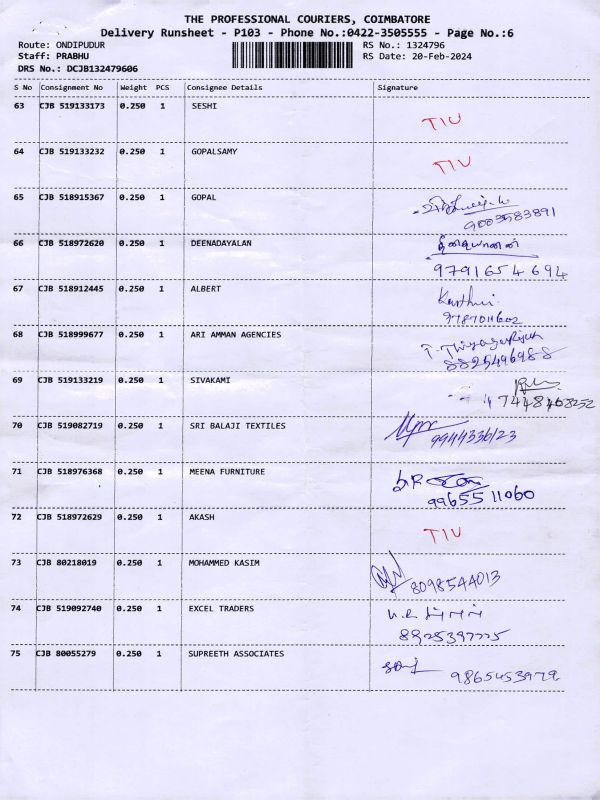 THE PROFESSIONAL COURIERS, COIMBATORE
Delivery Runsheet - P103 - Phone No.:0422-3505555 - Page No.:6
Route: ONDIPUDUR RS No.: 1324796
Staff: PRABHU RS Date: 20-Feb-2024
DRS No.: DCJB132479606
S No Consignment No Weight PCS Consignee Details Signature
63 CJB 519133173 0.250 1 SESHI
TIU
64 CJB 519133232 0.250 1 GOPALSAMY
TIU
65 CJB 518915367 0.250 1 GOPAL
9003583891
66 CJB 518972620 0.250 1 DEENADAYALAN
தீனதயாளன்
9791654694
67 CJB 518912445 0.250 1 ALBERT
9787011602
68 CJB 518999677 0.250 1 ARI AMMAN AGENCIES
T. Thiyagarajan
8825496988
69 CJB 519133219 0.250 1 SIVAKAMI
70 CJB 519082719 0.250 1 SRI BALAJI TEXTILES
9944336123
71 CJB 518976368 0.250 1 MEENA FURNITURE
9965511060
72 CJB 518972629 0.250 1 AKASH
TIU
73 CJB 80218019 0.250 1 MOHAMMED KASIM
8098544013
74 CJB 519092740 0.250 1 EXCEL TRADERS
75 CJB 80055279 0.250 1 SUPREETH ASSOCIATES
9865453979